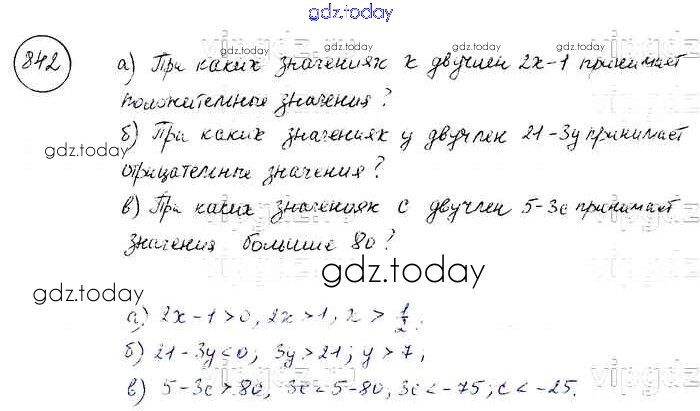 gdz.today
842 а) При каких значениях x двучлен 2x-1 принимает
положительные значения?
б) При каких значениях y двучлен 21-3y принимает
отрицательные значения?
в) При каких значениях c двучлен 5-3c принимает
значения больше 80?
а) 2x-1>0, 2x>1, x > 1/2;
б) 21-3y<0; 3y>21; y>7;
в) 5-3c>80, 3c<5-80, 3c<-75; c<-25.
gdz.today
gdz.today
gdz.today
gdz.today
gdz.today
gdz.today
gdz.today
gdz.today